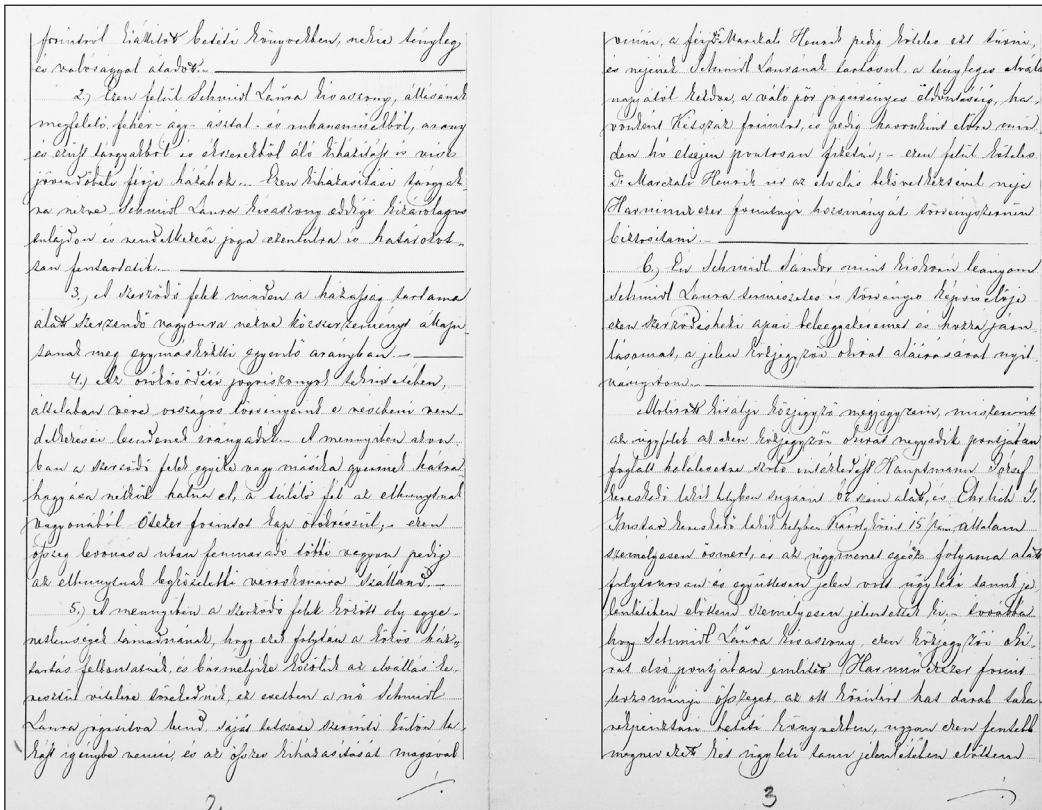 forintról kiállított betéti könyvekben, nekie tényleg
és valósággal átadott.
2.) Ezen felül Schmidl Laura kisasszony, állásának
megfelelő fehér- ágy- asztal- és ruhaneműekből, arany
és ezüst tárgyakból és ékszerekből álló kiházítást is visz
jövendőbeli férje házához. Ezen kiházasítási tárgyak-
ra nézve Schmidl Laura kisasszony eddigi kizárólagos
tulajdon és rendelkezési joga ezentúlra is határozot-
tan fentartatik.
3.) A szerződő felek minden a házasság tartama
alatt szerzendő vagyonra nézve közszerzeményt állapí-
tanak meg egymásközötti egyenlő arányban.
4.) Az öröklődési jogviszonyok tekintetében,
általában véve országos törvényeink e részbeni ren-
delkezései leendenek irányadók. A mennyiben azon-
ban a szerződő felek egyike vagy másika gyermek hátra-
hagyása nélkül halna el, a túlélő fél az elhunytnak
vagyonából Ötezer forintot kap örökrészül; ezen
összeg levonása után fenmaradó többi vagyon pedig
az elhunytnak legközelebbi vérrokonaira szálland.
5.) A mennyiben a szerződő felek között oly egye-
netlenségek támadnának, hogy ezek folytán a közös ház-
tartás felbontatnék, és bármelyike közülök az elvállás ke-
resztül vitelére törekednék, ez esetben a nő Schmidl
Laura jogosítva lend saját tetszése szerinti külön la-
kást igénybe venni, és az összes kiházasítását magával
2.
vinni, a férj Dr Marczali Henrik pedig köteles ezt tűrni,
és nejének Schmidl Laurának tartásul, a tényleges elválás
napjától kezdve, a váló pör jogervényes eldöntéséig, ha-
vonként Kétszáz forintot, és pedig havonkint előre min-
den hó elsején pontosan fizetni; ezen felül köteles
Dr. Marczali Henrik úr az elválás bekövetkeztével neje
Harminczezer forintnyi hozományát törvényszerűen
biztosítani.
6.) Én Schmidl Sándor mint kiskorú leányom
Schmidl Laura természetes és törvényes képviselője
ezen szerződéshezi apai beleegyezésemet és hozzájáru-
lásomat, a jelen közjegyzői okirat aláírásával nyil-
vánítom.
Alolírott királyi közjegyző megjegyzem, miszerint
az ügyfelek az ezen közjegyzői okirat negyedik pontjában
foglalt halálesetre szóló intézkedést Hauptmann József
kereskedő lakik helyben sugárút 62 szám alatt, és Ehrlich G.
Gusztáv kereskedő lakik helyben Károly körút 15 szám, általam
személyesen ösmert, és az ügymenet egész folyama alatt
folytonosan és együttesen jelen volt ügyleti tanúk je-
lenlétében előttem személyesen jelentették ki. továbbá
hogy Schmidl Laura kisasszony, ezen közjegyzői oki-
rat első pontjában említett Harminczezer forint
hozományi összeget, az ott körülírt hat darab taka-
rékpénztári betéti könyvekben, ugyan ezen fentebb
megnevezett két ügyleti tanú jelenlétében előttem
3